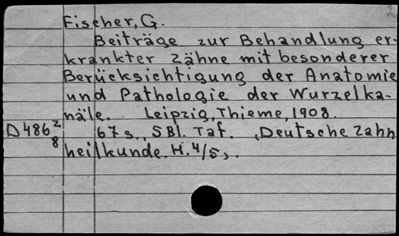 Fischer, G.
Beiträge zur Behandlung er-
krankter Zähne mit besonderer
Berücksichtigung der Anatomie
und Pathologie der Wurzelka-
näle. Leipzig, Thieme, 1908.
D486 2/8 67 s. 5 Bl. Taf. (Deutsche Zahn
heilkunde. H. 4/5).